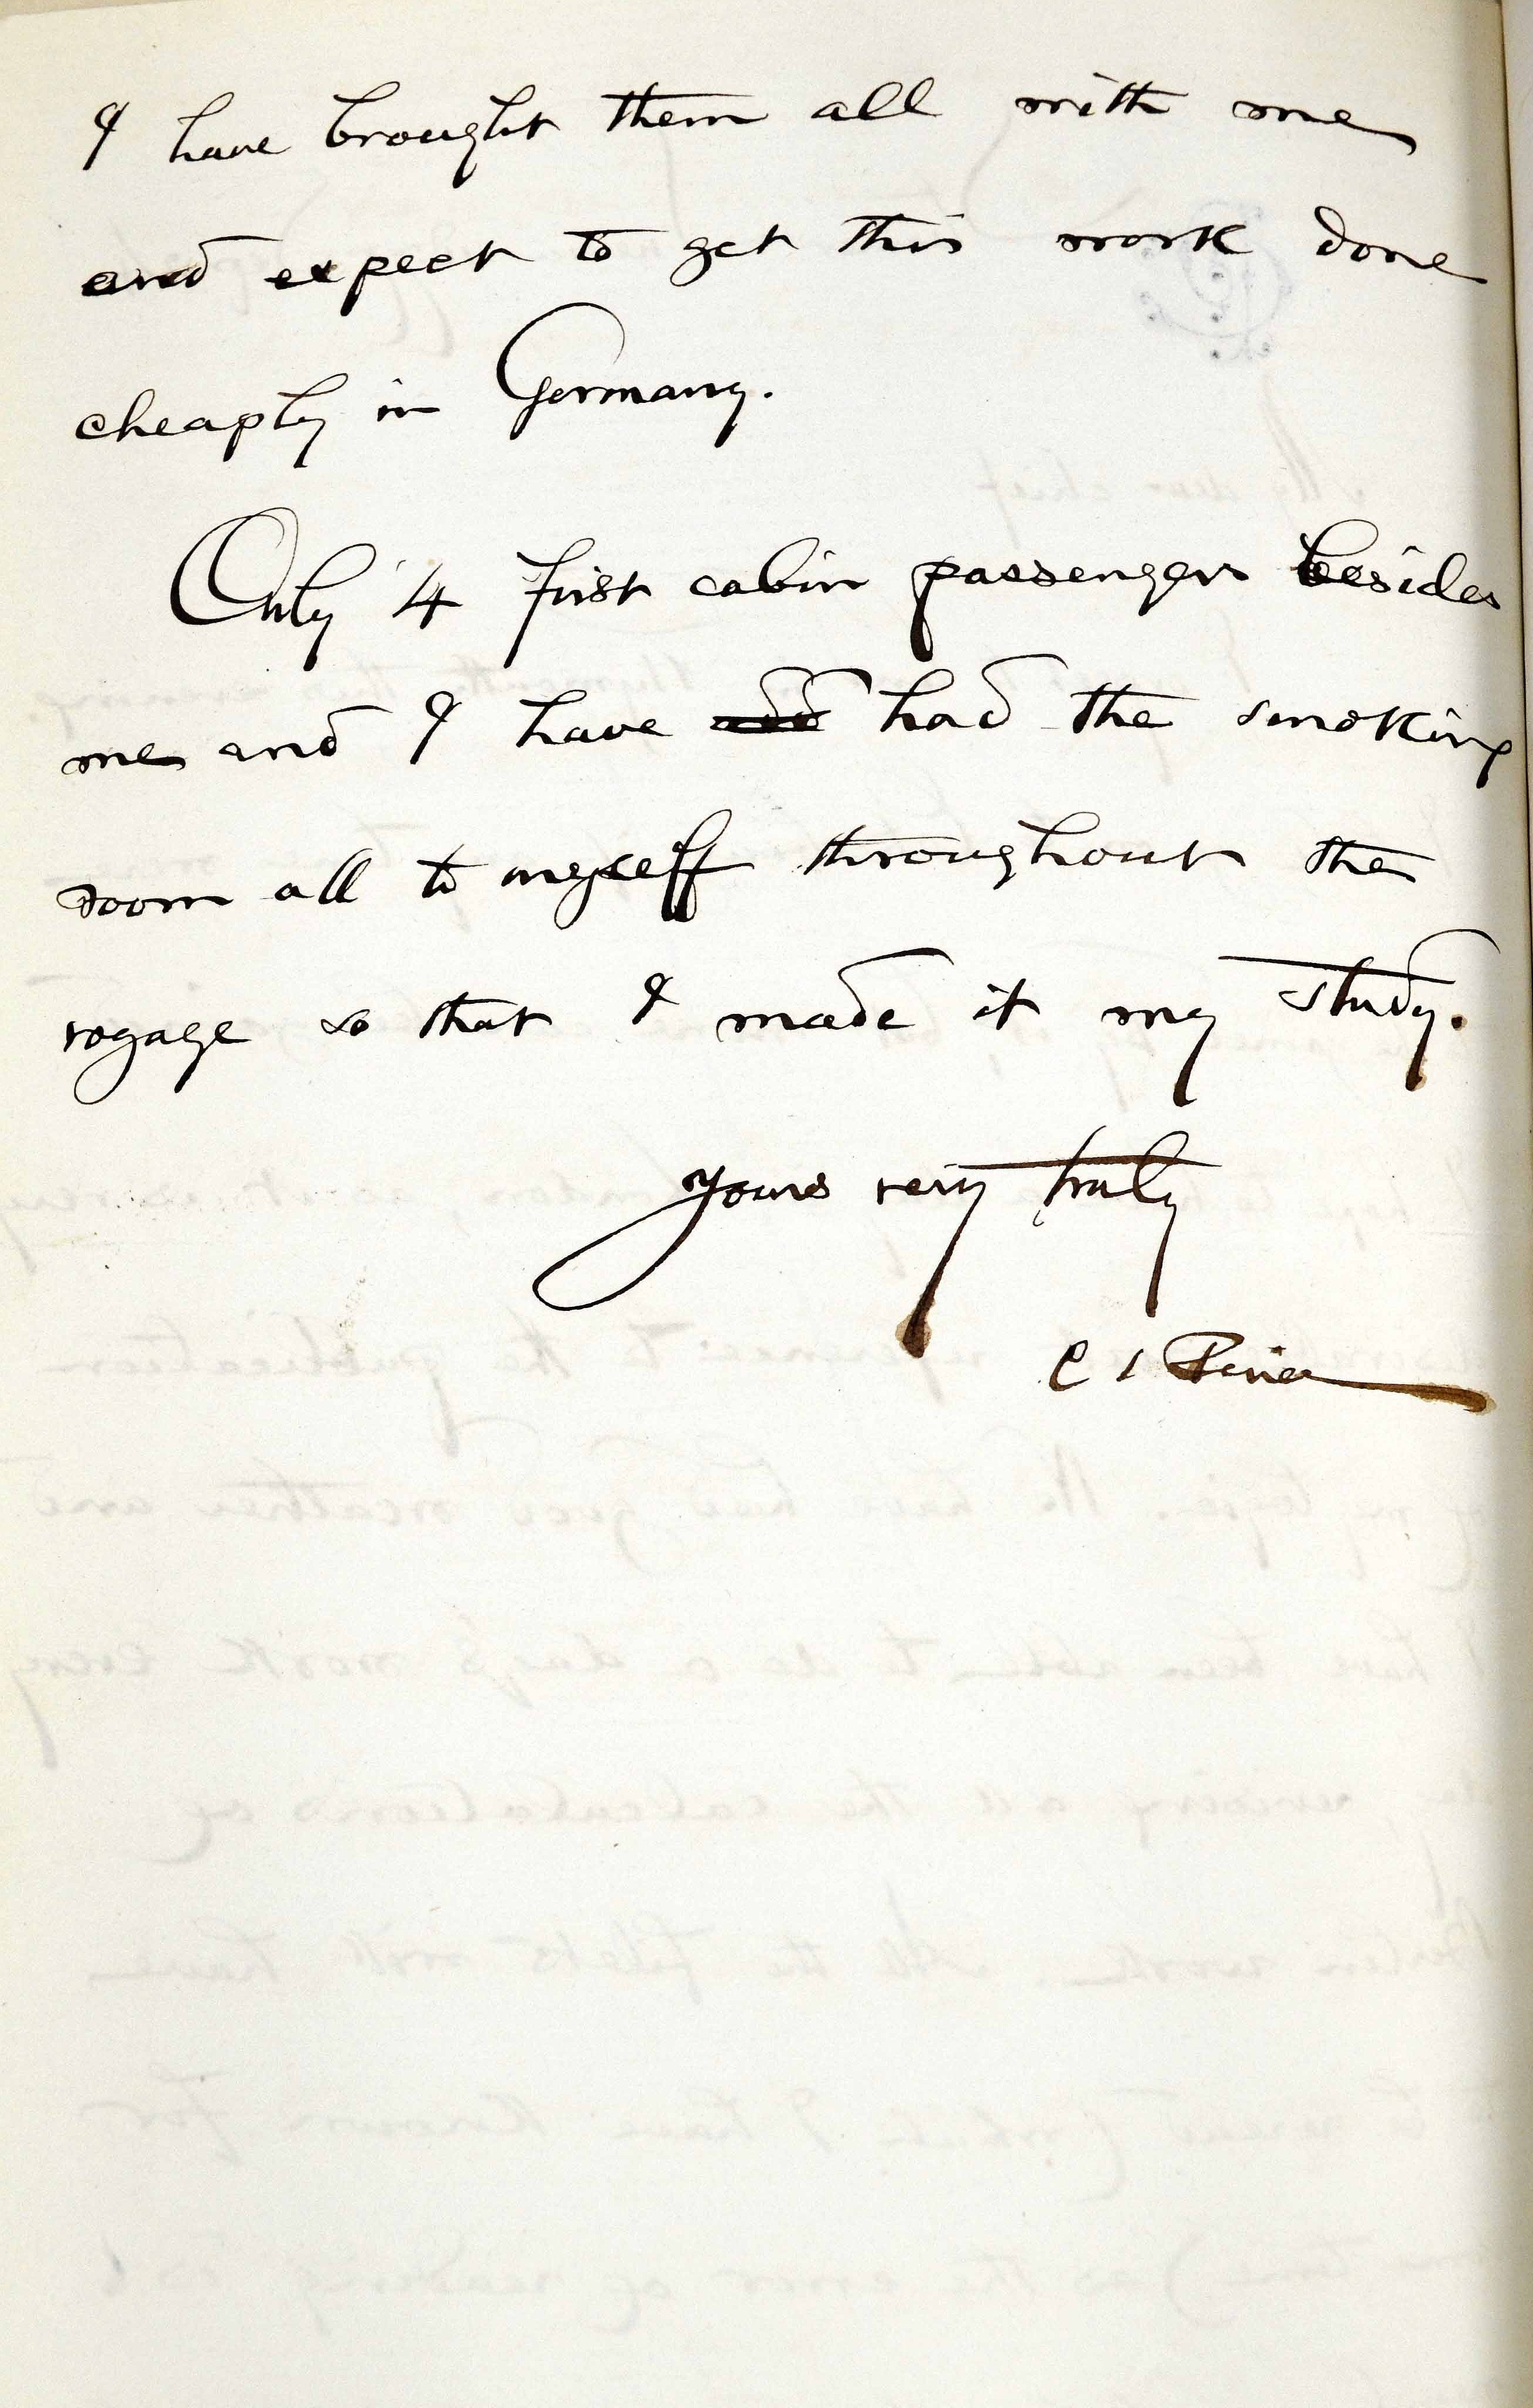 I have brought them all with me
and expect to get this work done
cheaply in Germany.
Only 4 first cabin passengers besides
me and I have had the smoking
room all to myself throughout the
voyage so that I made it my study.
Yours very truly
C S Peirce